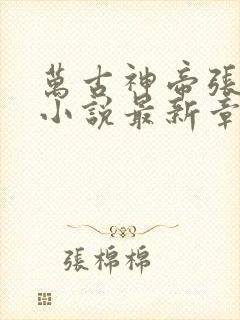 萬古神帝張
小說最新章
張棉棉